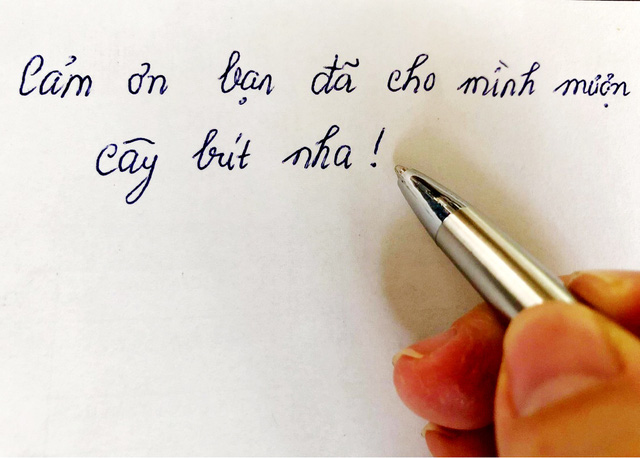 Cảm ơn bạn đã cho mình mượn
cây bút nha!